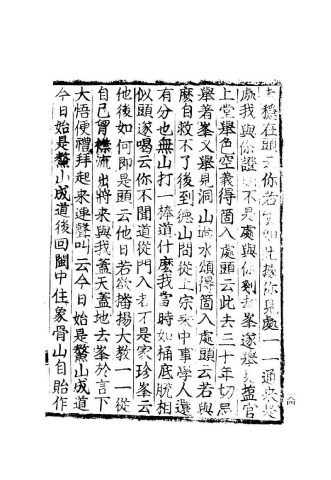 穩在頭云你若實如此據你見處一一通來是
處我與你證明不是處與你剗却峯遂舉見鹽官
上堂舉色空義得箇入處頭云此去三十年切忌
舉著峯又舉見洞山過水頌得箇入處頭云若與
麽自救不了後到德山問從上宗乘中事學人還
有分也無山打一棒道什麽我當時如桶底脫相
似頭遂喝云你不聞道從門入者不是家珍峯云
他後如何即是頭云他日若欲播揚大教一一從
自己胷襟流出將來與我蓋天蓋地去峯於言下
大悟便禮拜起來連聲叫云今日始是鰲山成道
今日始是鰲山成道後回閩中住象骨山自貽作